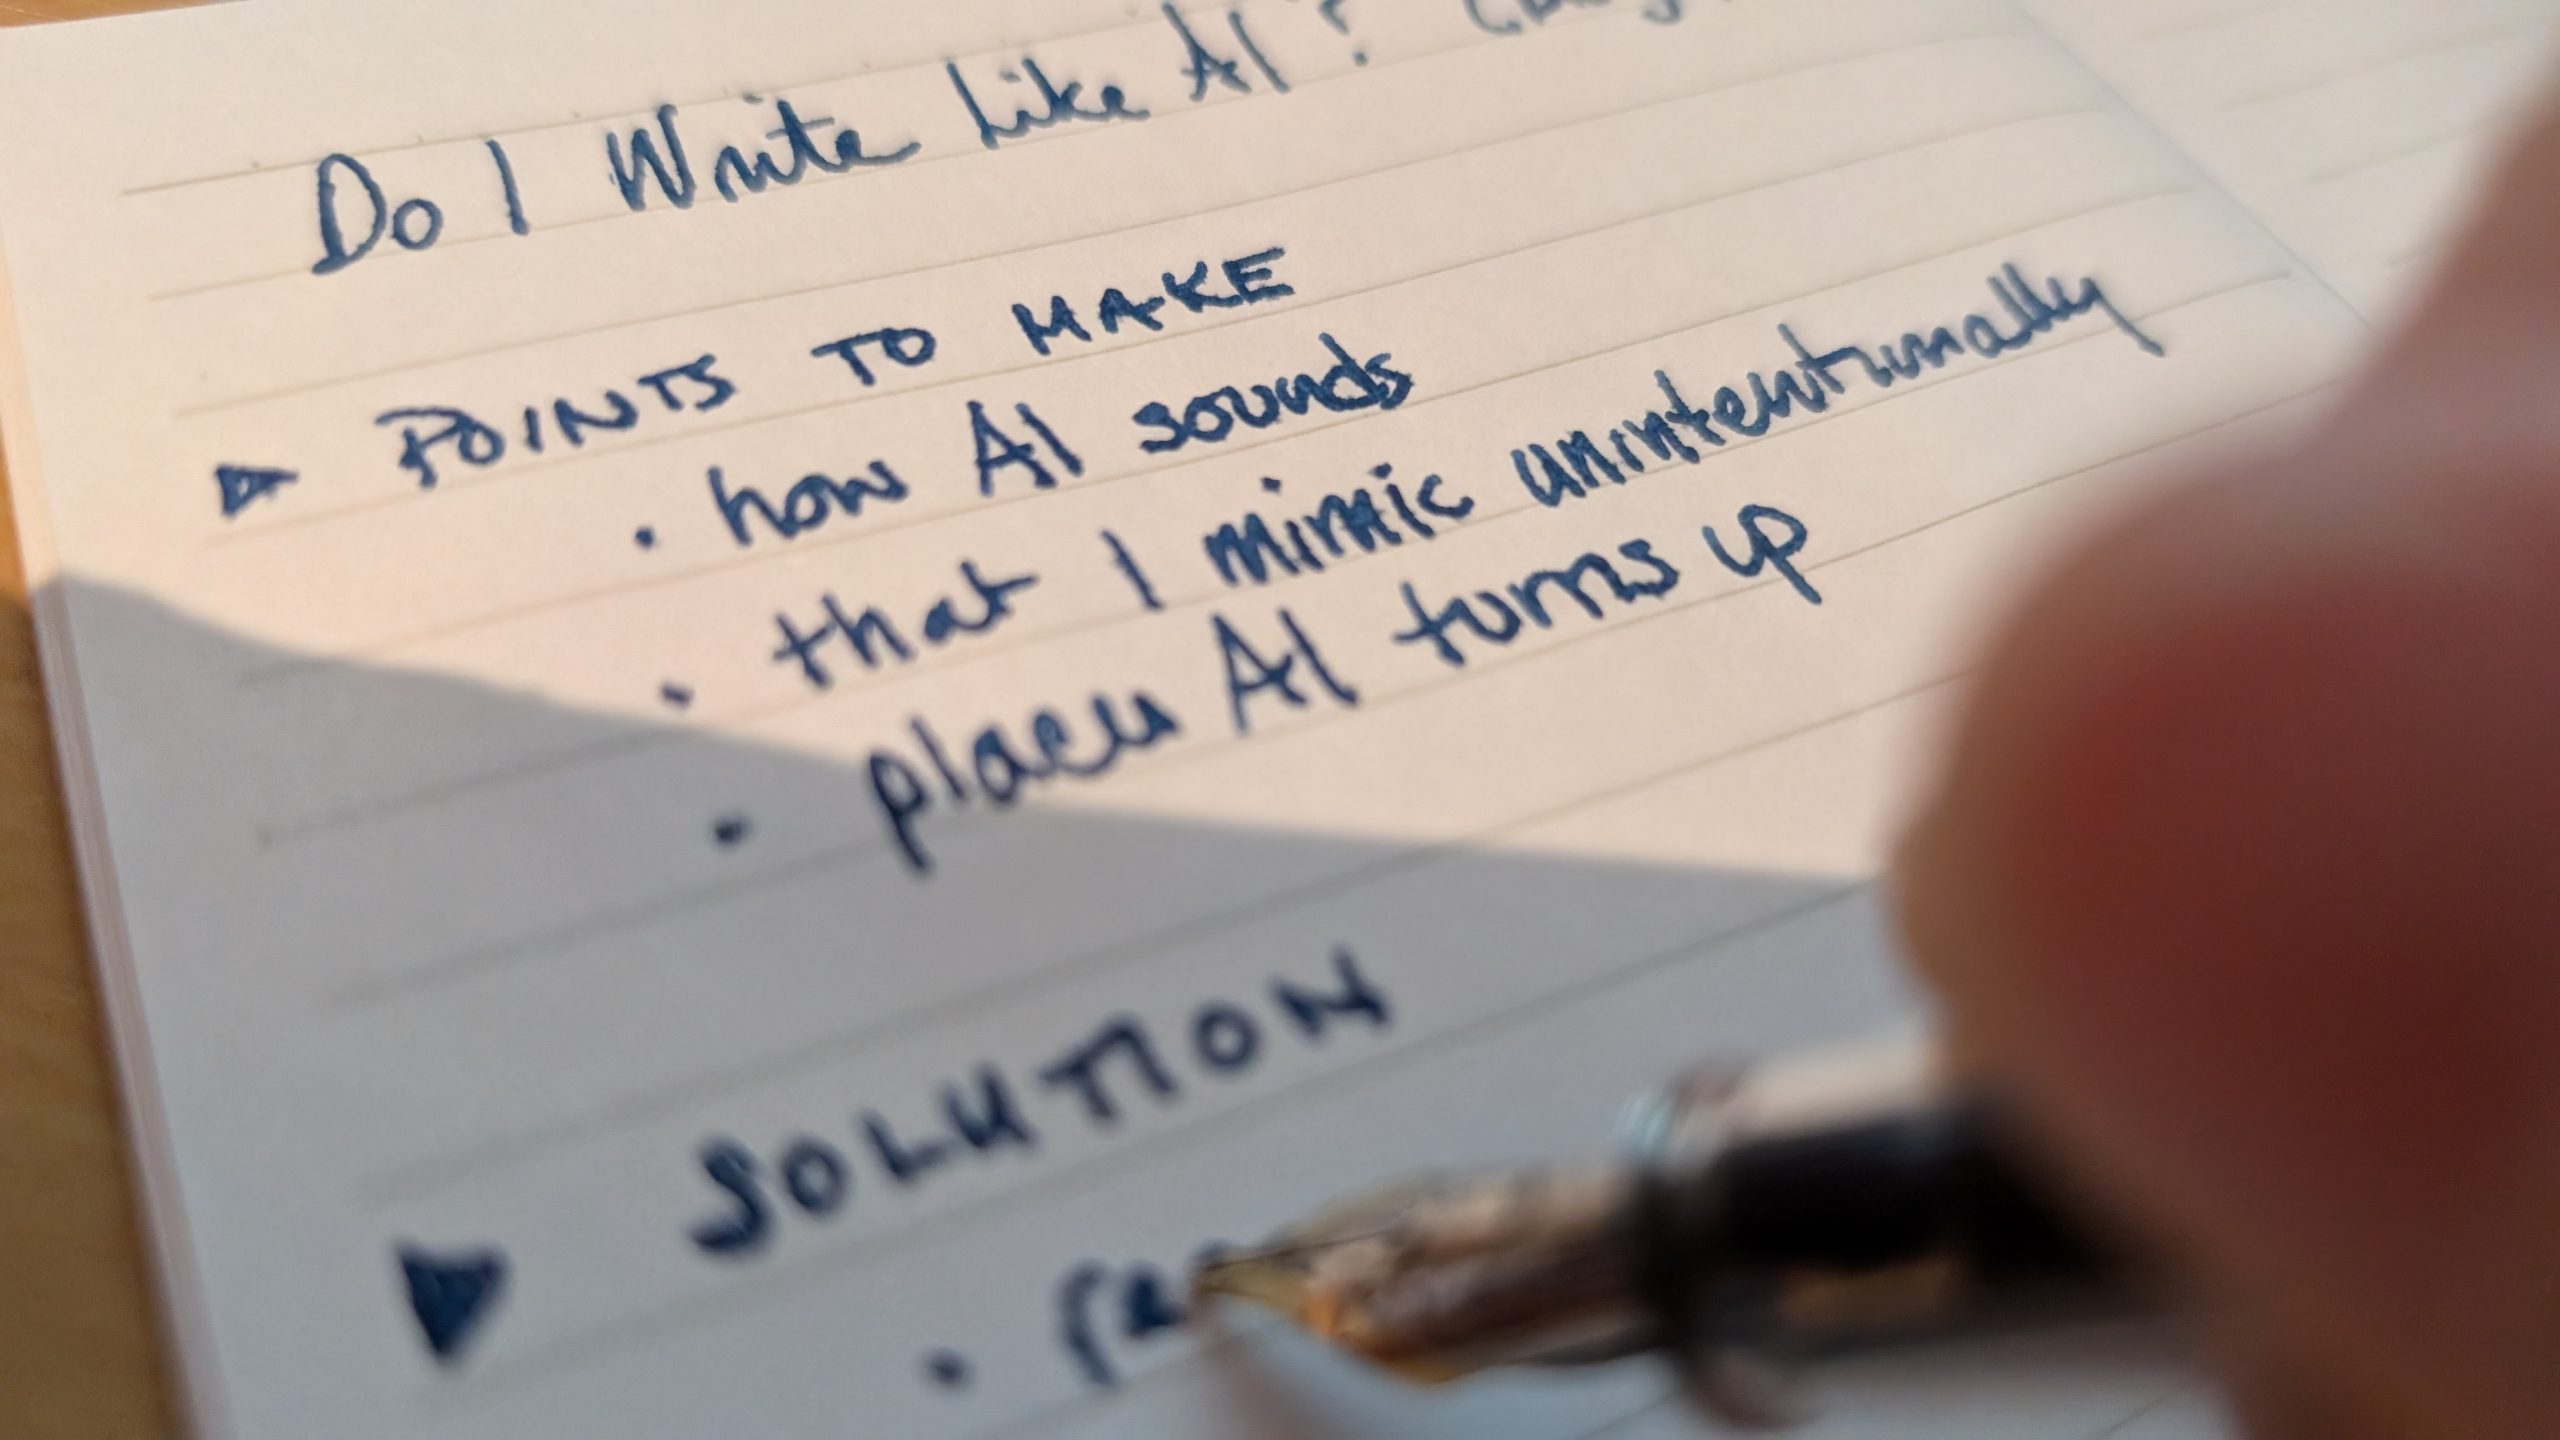 Do I Write Like AI?
▶ POINTS TO MAKE
· how AI sounds
· that I mimic unintentionally
· places AI turns up
▶ SOLUTION
·